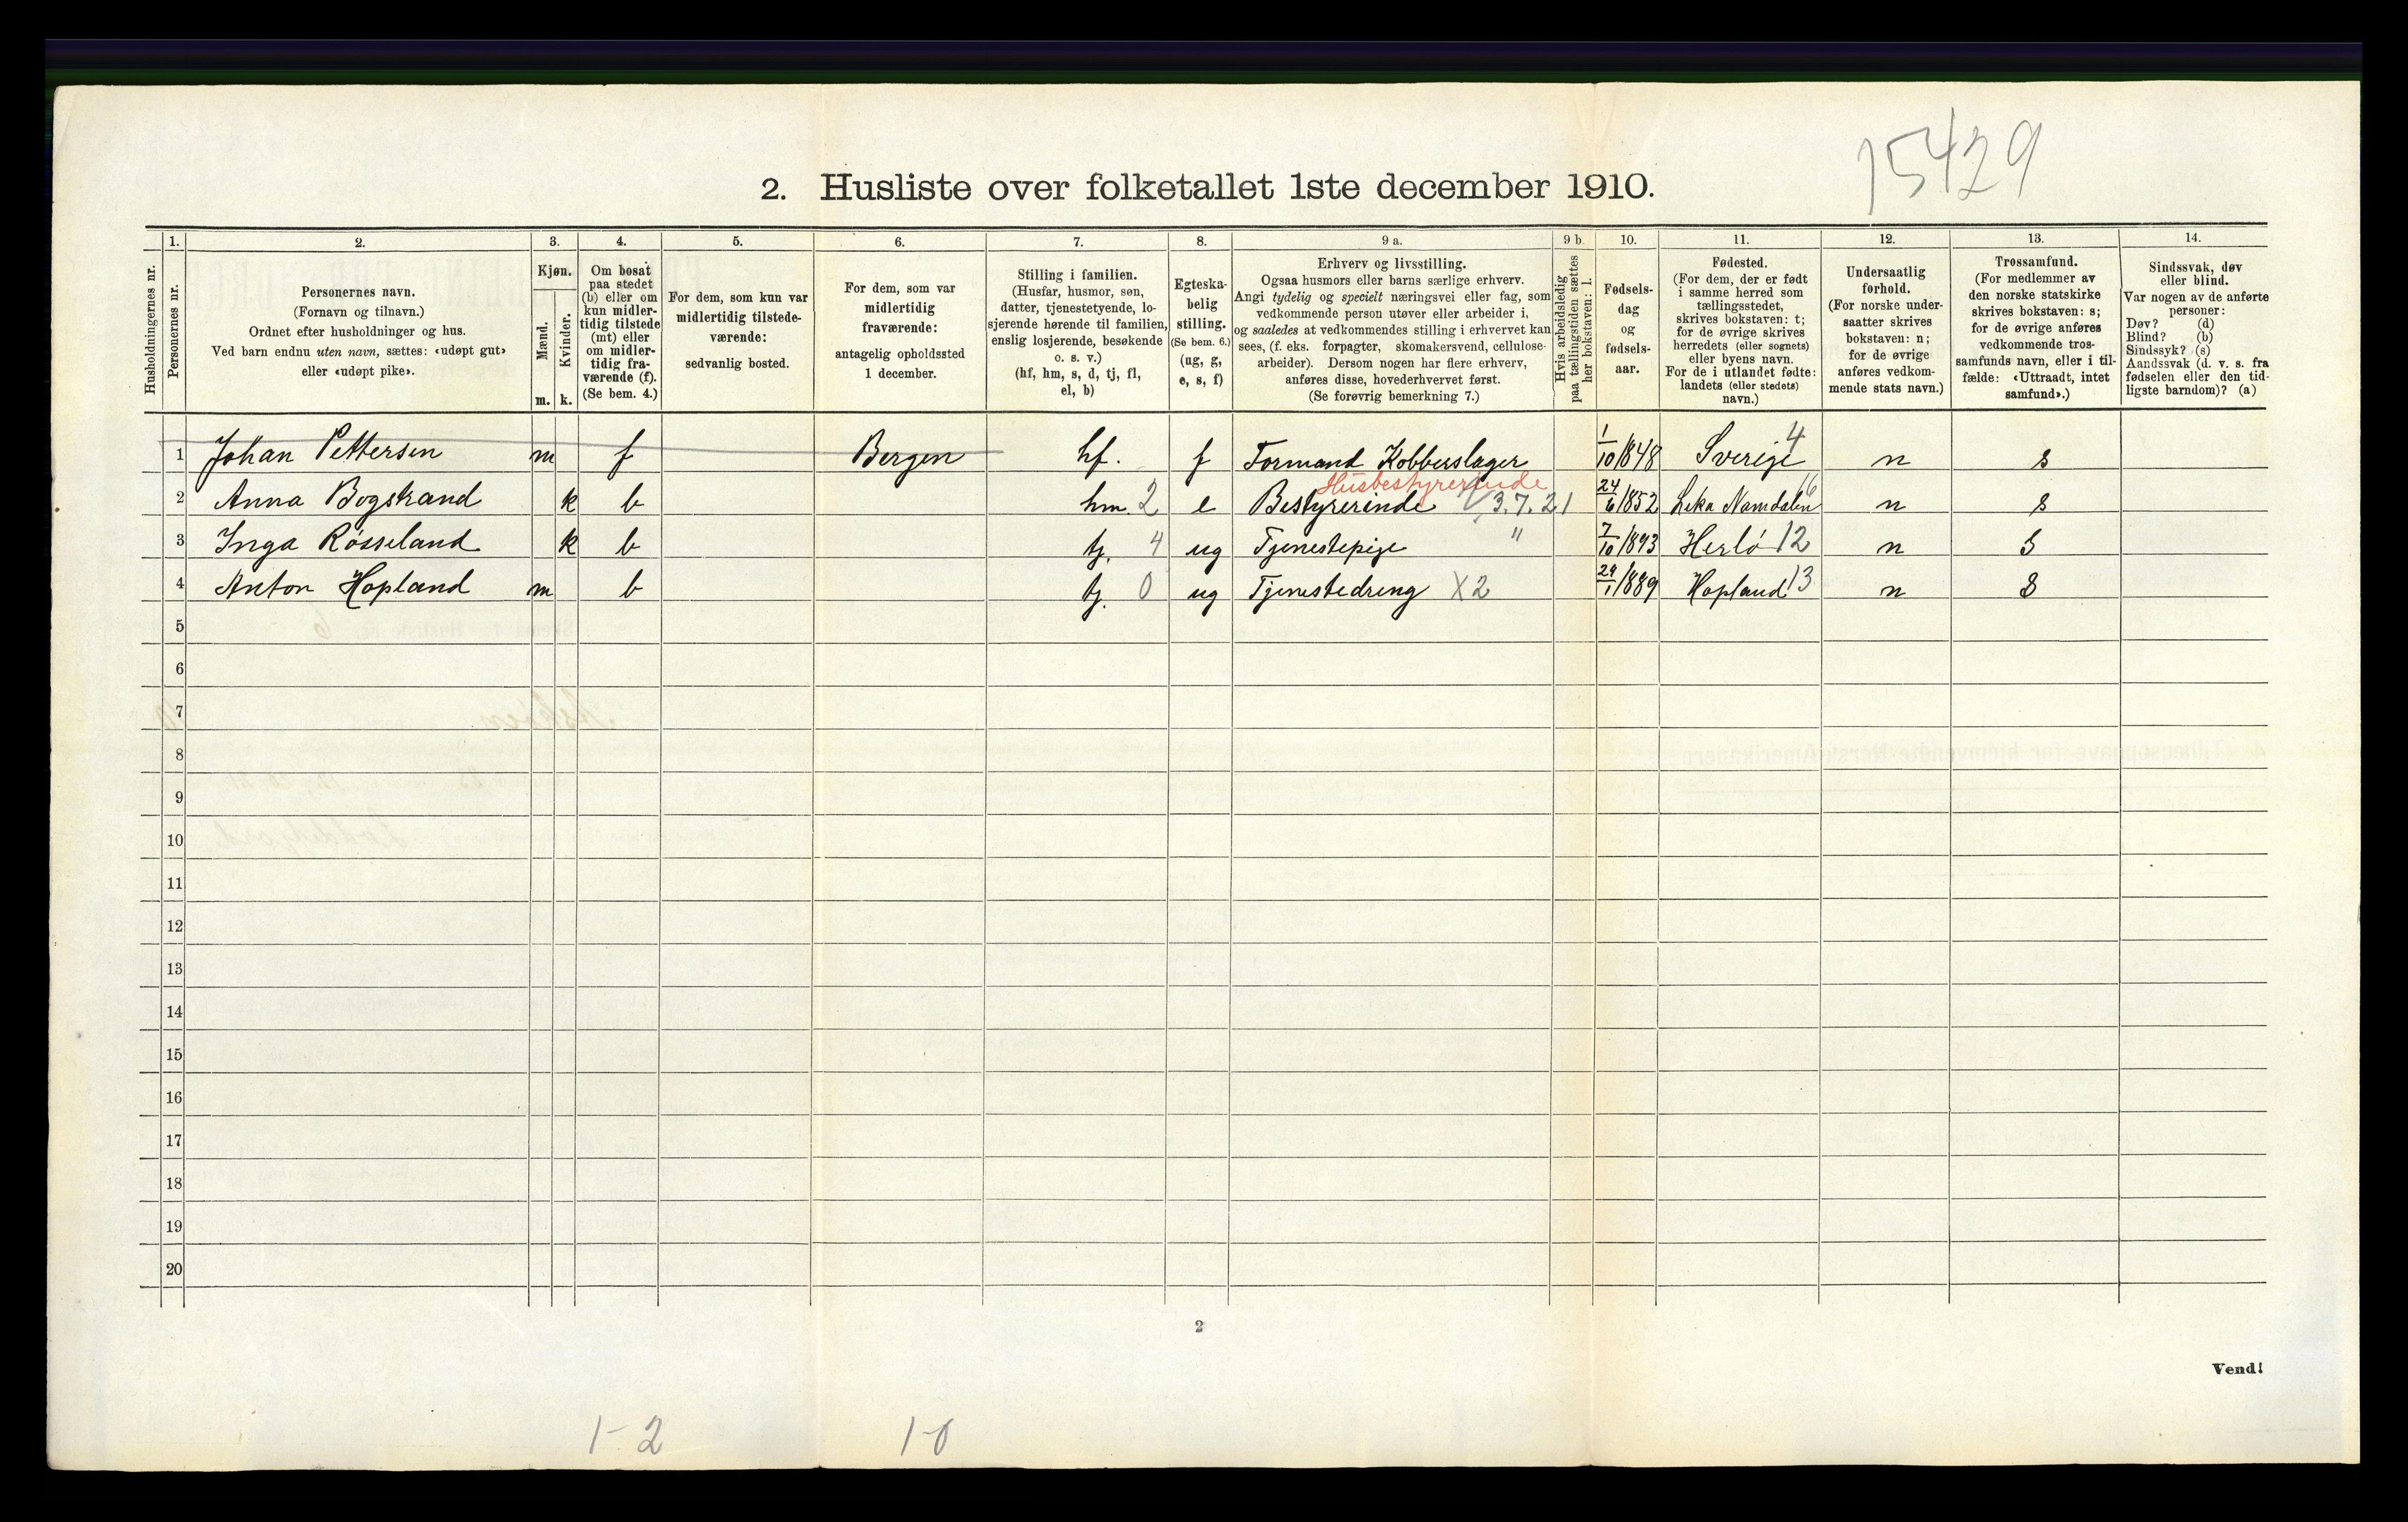 15429
2. Husliste over folketallet 1ste december 1910.
Husholdningernes nr.
1. Personernes nr.
2. Personernes navn.
(Fornavn og tilnavn.)
Ordnet efter husholdninger og hus.
Ved barn endnu uten navn, sættes: «udøpt gut»
eller «udøpt pike».
3. Kjøn.
Mænd. Kvinder.
m. k.
4. Om bosat
paa stedet
(b) eller om
kun midler-
tidig tilstede
(mt) eller
om midler-
tidig fra-
værende (f).
(Se bem. 4.)
5. For dem, som kun var
midlertidig tilstede-
værende:
sedvanlig bosted.
6. For dem, som var
midlertidig
fraværende:
antagelig opholdssted
1 december.
7. Stilling i familien.
(Husfar, husmor, søn,
datter, tjenestetyende, lo-
sjerende hørende til familien,
enslig losjerende, besøkende
o. s. v.)
(hf, hm, s, d, tj, fl,
el, b)
8. Egteska-
belig
stilling.
(Se bem. 6.)
(ug, g,
e, s, f)
9 a. Erhverv og livsstilling.
Ogsaa husmors eller barns særlige erhverv.
Angi tydelig og specielt næringsvei eller fag, som
vedkommende person utøver eller arbeider i,
og saaledes at vedkommendes stilling i erhvervet kan
sees, (f. eks. forpagter, skomakersvend, cellulose-
arbeider). Dersom nogen har flere erhverv,
anføres disse, hovederhvervet først.
(Se forøvrig bemerkning 7.)
9 b. Hvis arbeidsledig
paa tællingstiden sættes
her bokstaven: l.
10. Fødsels-
dag
og
fødsels-
aar.
11. Fødested.
(For dem, der er født
i samme herred som
tællingsstedet,
skrives bokstaven: t;
for de øvrige skrives
herredets (eller sognets)
eller byens navn.
For de i utlandet fødte:
landets (eller stedets)
navn.)
12. Undersaatlig
forhold.
(For norske under-
saatter skrives
bokstaven: n;
for de øvrige
anføres vedkom-
mende stats navn.)
13. Trossamfund.
(For medlemmer av
den norske statskirke
skrives bokstaven: s;
for de øvrige anføres
vedkommende tros-
samfunds navn, eller i til-
fælde: «Uttraadt, intet
samfund».)
14. Sindssvak, døv
eller blind.
Var nogen av de anførte
personer:
Døv? (d)
Blind? (b)
Sindssyk? (s)
Aandssvak (d. v. s. fra
fødselen eller den tid-
ligste barndom)? (a)
1 Johan Pettersen m f Bergen hf. f Formand Kobberslager 1/10 1848 Sverige 4 n s
Husbestyrerinde
2 Anna Bogstrand k b hm. 2 e Bestyrerinde 3.7.21 24/6 1852 Leka Namdalen 16 n s
3 Inga Røsseland k b tj. 4 ug Tjenestepige " 7/10 1893 Herlö 12 n s
4 Anton Hopland m b tj. 0 ug Tjenestedreng X2 29/1 1889 Hopland 13 n s
5
6
7
8
9
10
11
12
13
14
15
16
17
18
19
20
2
Vend!
1-2 1-0